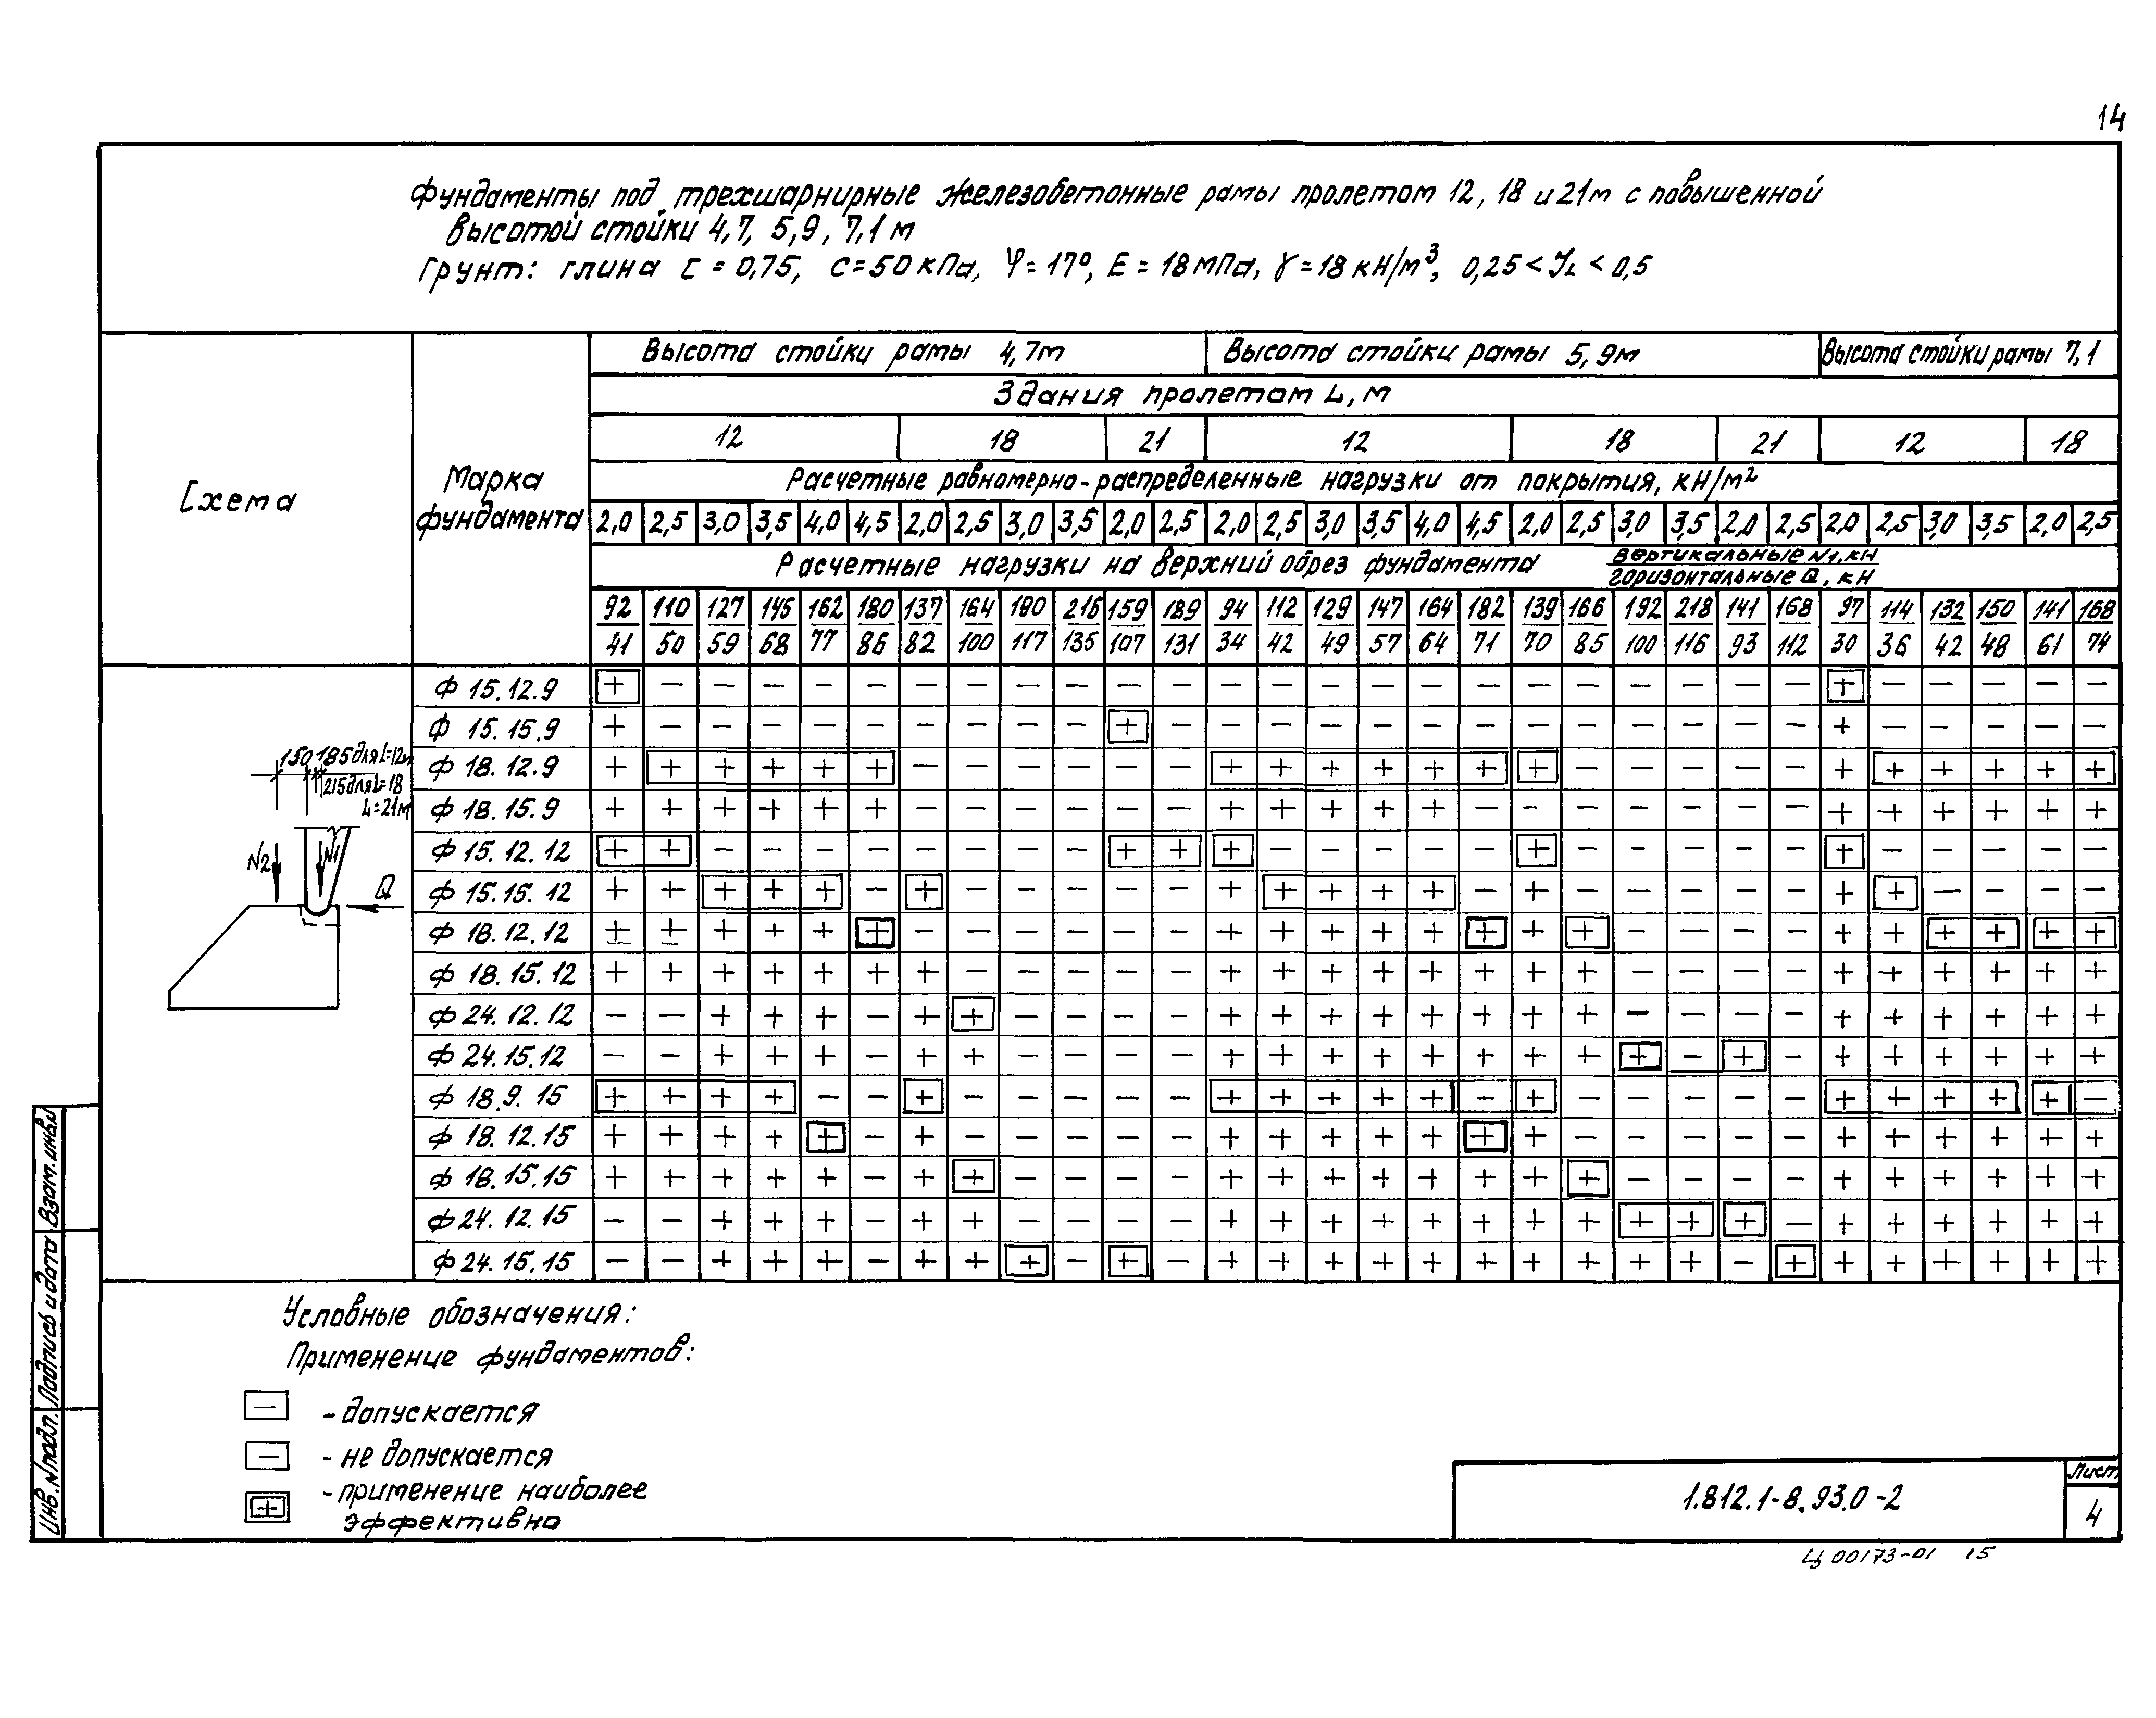 14
Фундаменты под трехшарнирные железобетонные рамы пролетом 12, 18 и 21м с повышенной
высотой стойки 4,7, 5,9, 7,1 м
Грунт: глина С = 0,75, С=50 кПа, φ = 17°, E = 18 мПа, γ = 18 кН/м³, 0,25 < JL < 0,5
Схема
Марка фундамента
Высота стойки рамы 4,7м Высота стойки рамы 5,9м Высота стойки рамы 7,1
Здания пролетом L, м
12 18 21 12 18 21 12 18
Расчетные равномерно-распределенные нагрузки от покрытия, кН/м²
2,0 2,5 3,0 3,5 4,0 4,5 2,0 2,5 3,0 3,5 2,0 2,5 2,0 2,5 3,0 3,5 4,0 4,5 2,0 2,5 3,0 3,5 2,0 2,5 2,0 2,5 3,0 3,5 2,0 2,5
Расчетные нагрузки на верхний обрез фундамента вертикальные N1, кН
горизонтальные Q, кН
92 110 127 145 162 180 137 164 190 216 159 189 94 112 129 147 164 182 139 166 192 218 141 168 97 114 132 150 141 168
41 50 59 68 77 86 82 100 117 135 107 131 34 42 49 57 64 71 70 85 100 116 93 112 30 36 42 48 61 74
Ф 15.12.9 + – – – – – – – – – – – – – – – – – – – – – – – + – – – – –
Ф 15.15.9 + – – – – – – – – – + – – – – – – – – – – – – – + – – – – –
Ф 18.12.9 + + + + + + – – – – – – + + + + + + + – – – – – + + + + + +
Ф 18.15.9 + + + + + + – – – – – – + + + + + – – – – – – – + + + + + +
Ф 15.12.12 + + – – – – – – – – + + + – – – – – + – – – – – + – – – – –
Ф 15.15.12 + + + + + – + – – – – – + + + + + – + – – – – – + + – – – –
Ф 18.12.12 + + + + + + – – – – – – + + + + + + + + – – – – + + + + + +
Ф 18.15.12 + + + + + + + – – – – – + + + + + + + + – – – – + + + + + +
Ф 24.12.12 – – + + + – + + – – – – + + + + + + + + – – – – + + + + + +
Ф 24.15.12 – – + + + – + + – – – – + + + + + + + + + – + – + + + + + +
Ф 18.9.15 + + + + – – + – – – – – + + + + + – + – – – – – + + + + + –
Ф 18.12.15 + + + + + – + – – – – – + + + + + + + – – – – – + + + + + +
Ф 18.15.15 + + + + + – + + – – – – + + + + + + + + – – – – + + + + + +
Ф 24.12.15 – – + + + – + + – – – – + + + + + + + + + + + – + + + + + +
Ф 24.15.15 – – + + + – + + + – + – + + + + + + + + + + – + + + + + + +
150 185 для L=12м
215 для L=18
L=21м
N2
N1
Q
Условные обозначения:
Применение фундаментов:
– - допускается
– - не допускается
+ - применение наиболее
эффективно
1.812.1-8.93.0-2
Лист
4
Ц 00173-01 15
Инв. N подл. Подпись и дата Взам. инв. N